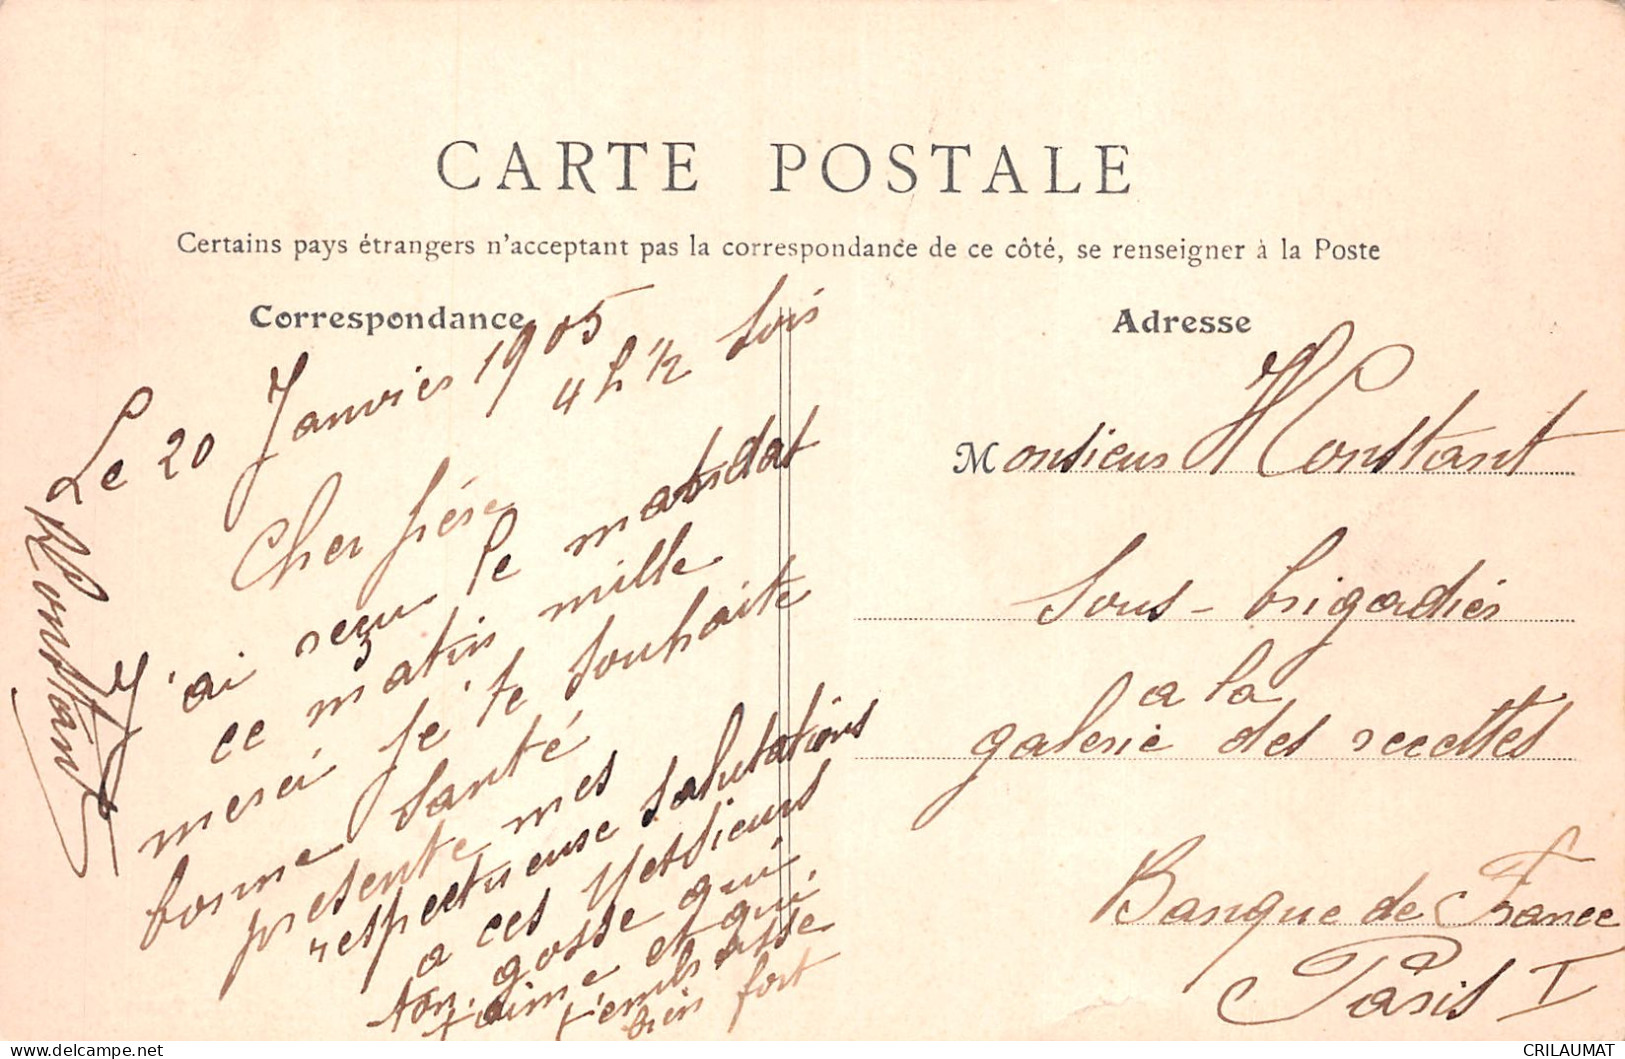 CARTE POSTALE
Certains pays étrangers n'acceptant pas la correspondance de ce côté, se renseigner à la Poste
Correspondance
Le 20 Janvier 1905
4 h 1/2 Soir
Cher frére
J'ai reçu le mandat
ce matin mille
merci je te souhaite
bonne santé
présente mes
respectueuse salutations
a ces Messieurs
ton gosse qui
t'aime et qui
t'embrasse
bien fort
Constant
Adresse
Monsieur H Constant
Sous-brigadier
a la
galerie des recettes
Banque de France
Paris I
CRILAUMAT